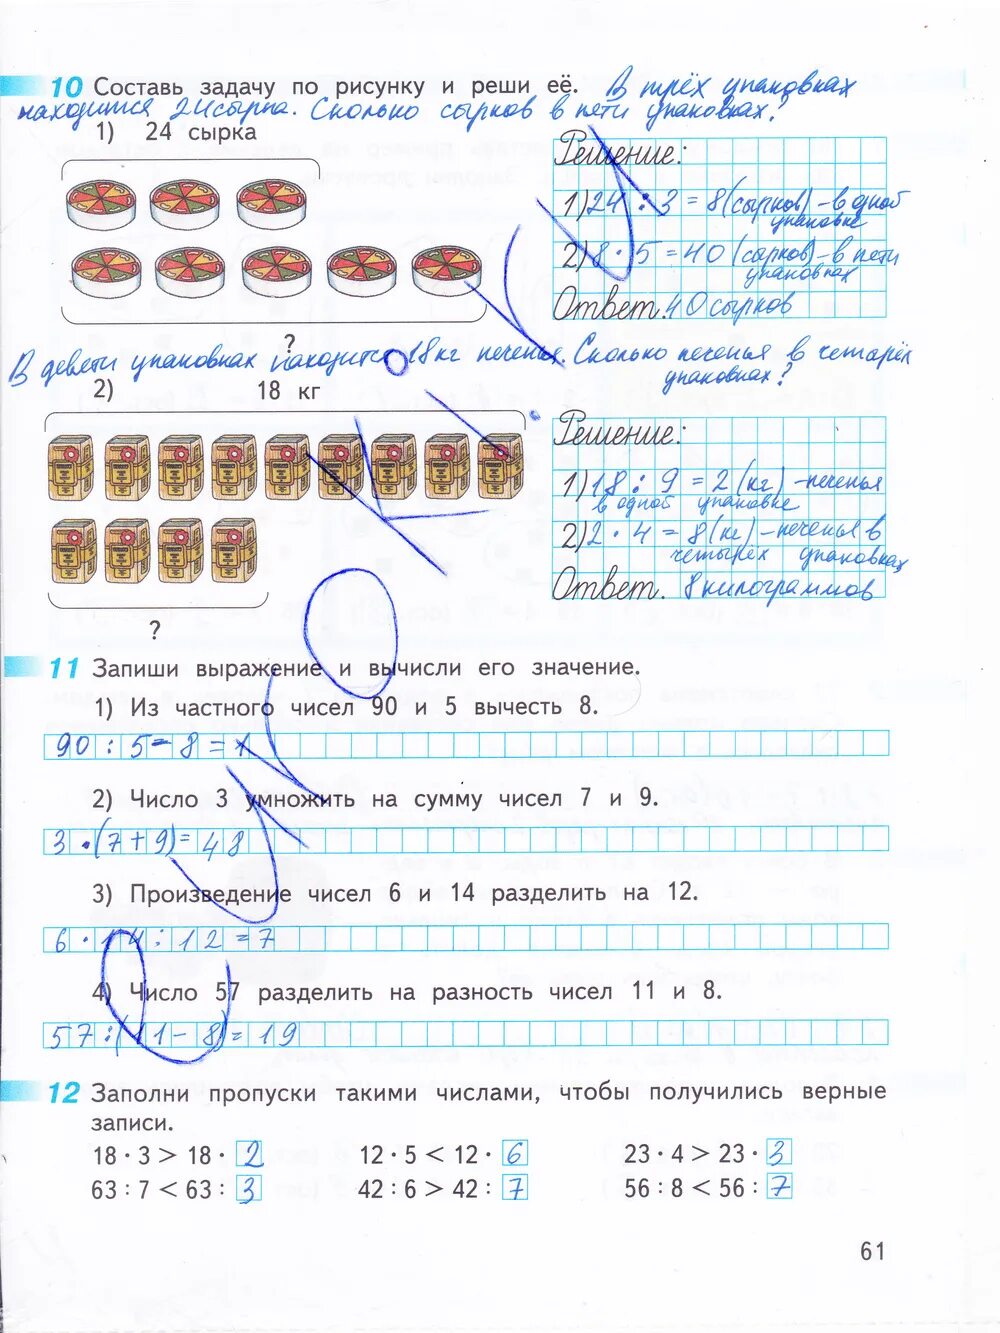 10 Составь задачу по рисунку и реши её. В трёх упаковках
находится 24 сырка. Сколько сырков в пяти упаковках?
1) 24 сырка
Решение:
1) 24 : 3 = 8 (сырков) – в одной
упаковке
2) 8 · 5 = 40 (сарков) – в пяти
упаковках
Ответ. 40 сырков
?
В девяти упаковках находится 18 кг печенья. Сколько печенья в четырёх
упаковках?
2) 18 кг
Решение:
1) 18 : 9 = 2 (кг) – печенья
в одной упаковке
2) 2 · 4 = 8 (кг) – печенья в
четырёх упаковках
Ответ. 8 килограммов
?
11 Запиши выражение и вычисли его значение.
1) Из частного чисел 90 и 5 вычесть 8.
90 : 5 – 8 = 1
2) Число 3 умножить на сумму чисел 7 и 9.
3 · (7 + 9) = 48
3) Произведение чисел 6 и 14 разделить на 12.
6 · 14 : 12 = 7
4) Число 57 разделить на разность чисел 11 и 8.
57 : (11 – 8) = 19
12 Заполни пропуски такими числами, чтобы получились верные
записи.
18 · 3 > 18 · 2 12 · 5 < 12 · 6 23 · 4 > 23 · 3
63 : 7 < 63 : 3 42 : 6 > 42 : 7 56 : 8 < 56 : 7
61